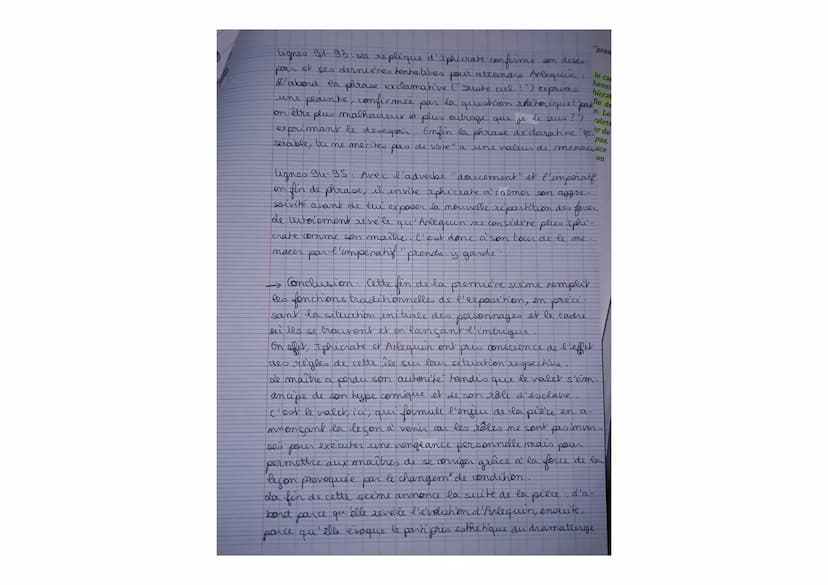 Lignes 91-93 : sa replique d'Iphicrate confirme son deses-
poir et ses dernières tentatives pour atteindre Arlequin.
D'abord la phrase exclamative ("Juste ciel !") exprime
une plainte, confirmée par la question rhétorique ("peut
on être plus malheureux et plus outragé que je le suis ?")
exprimant le desespoir. Enfin la phrase declarative "Mi-
sérable, tu ne mérites pas de vivre" a une valeur de menace
Lignes 94-95 : Avec l'adverbe "doucement" et l'impératif
en fin de phrase, il invite Iphicrate à calmer son aggre-
ssivité avant de lui exposer la nouvelle répartition des forces
Le tutoiement révèle qu'Arlequin ne considère plus Iphi-
crate comme son maître. C'est donc à son tour de le me-
nacer par l'impératif "prends-y garde".
→ Conclusion : Cette fin de la première scène remplit
les fonctions traditionnelles de l'exposition, en préci-
sant la situation initiale des personnages et le cadre
où ils se trouvent et en lançant l'intrigue.
En effet, Iphicrate et Arlequin ont pris conscience de l'effet
des règles de cette île sur leur situation respective.
Le maître a perdu son autorité tandis que le valet s'ém-
ancipe de son type comique et de son rôle d'esclave.
C'est le valet, ici, qui formule l'enjeu de la pièce en a-
nnonçant la leçon à venir car les rôles ne sont pas inver-
sés pour exécuter une vengeance personnelle mais pour
permettre aux maîtres de se corriger grâce à la force de la
leçon provoquée par le changemt de condition.
La fin de cette scène annonce la suite de la pièce : d'a-
bord parce qu'elle révèle l'évolution d'Arlequin, ensuite,
parce qu'elle évoque le parti pris esthétique du dramaturge